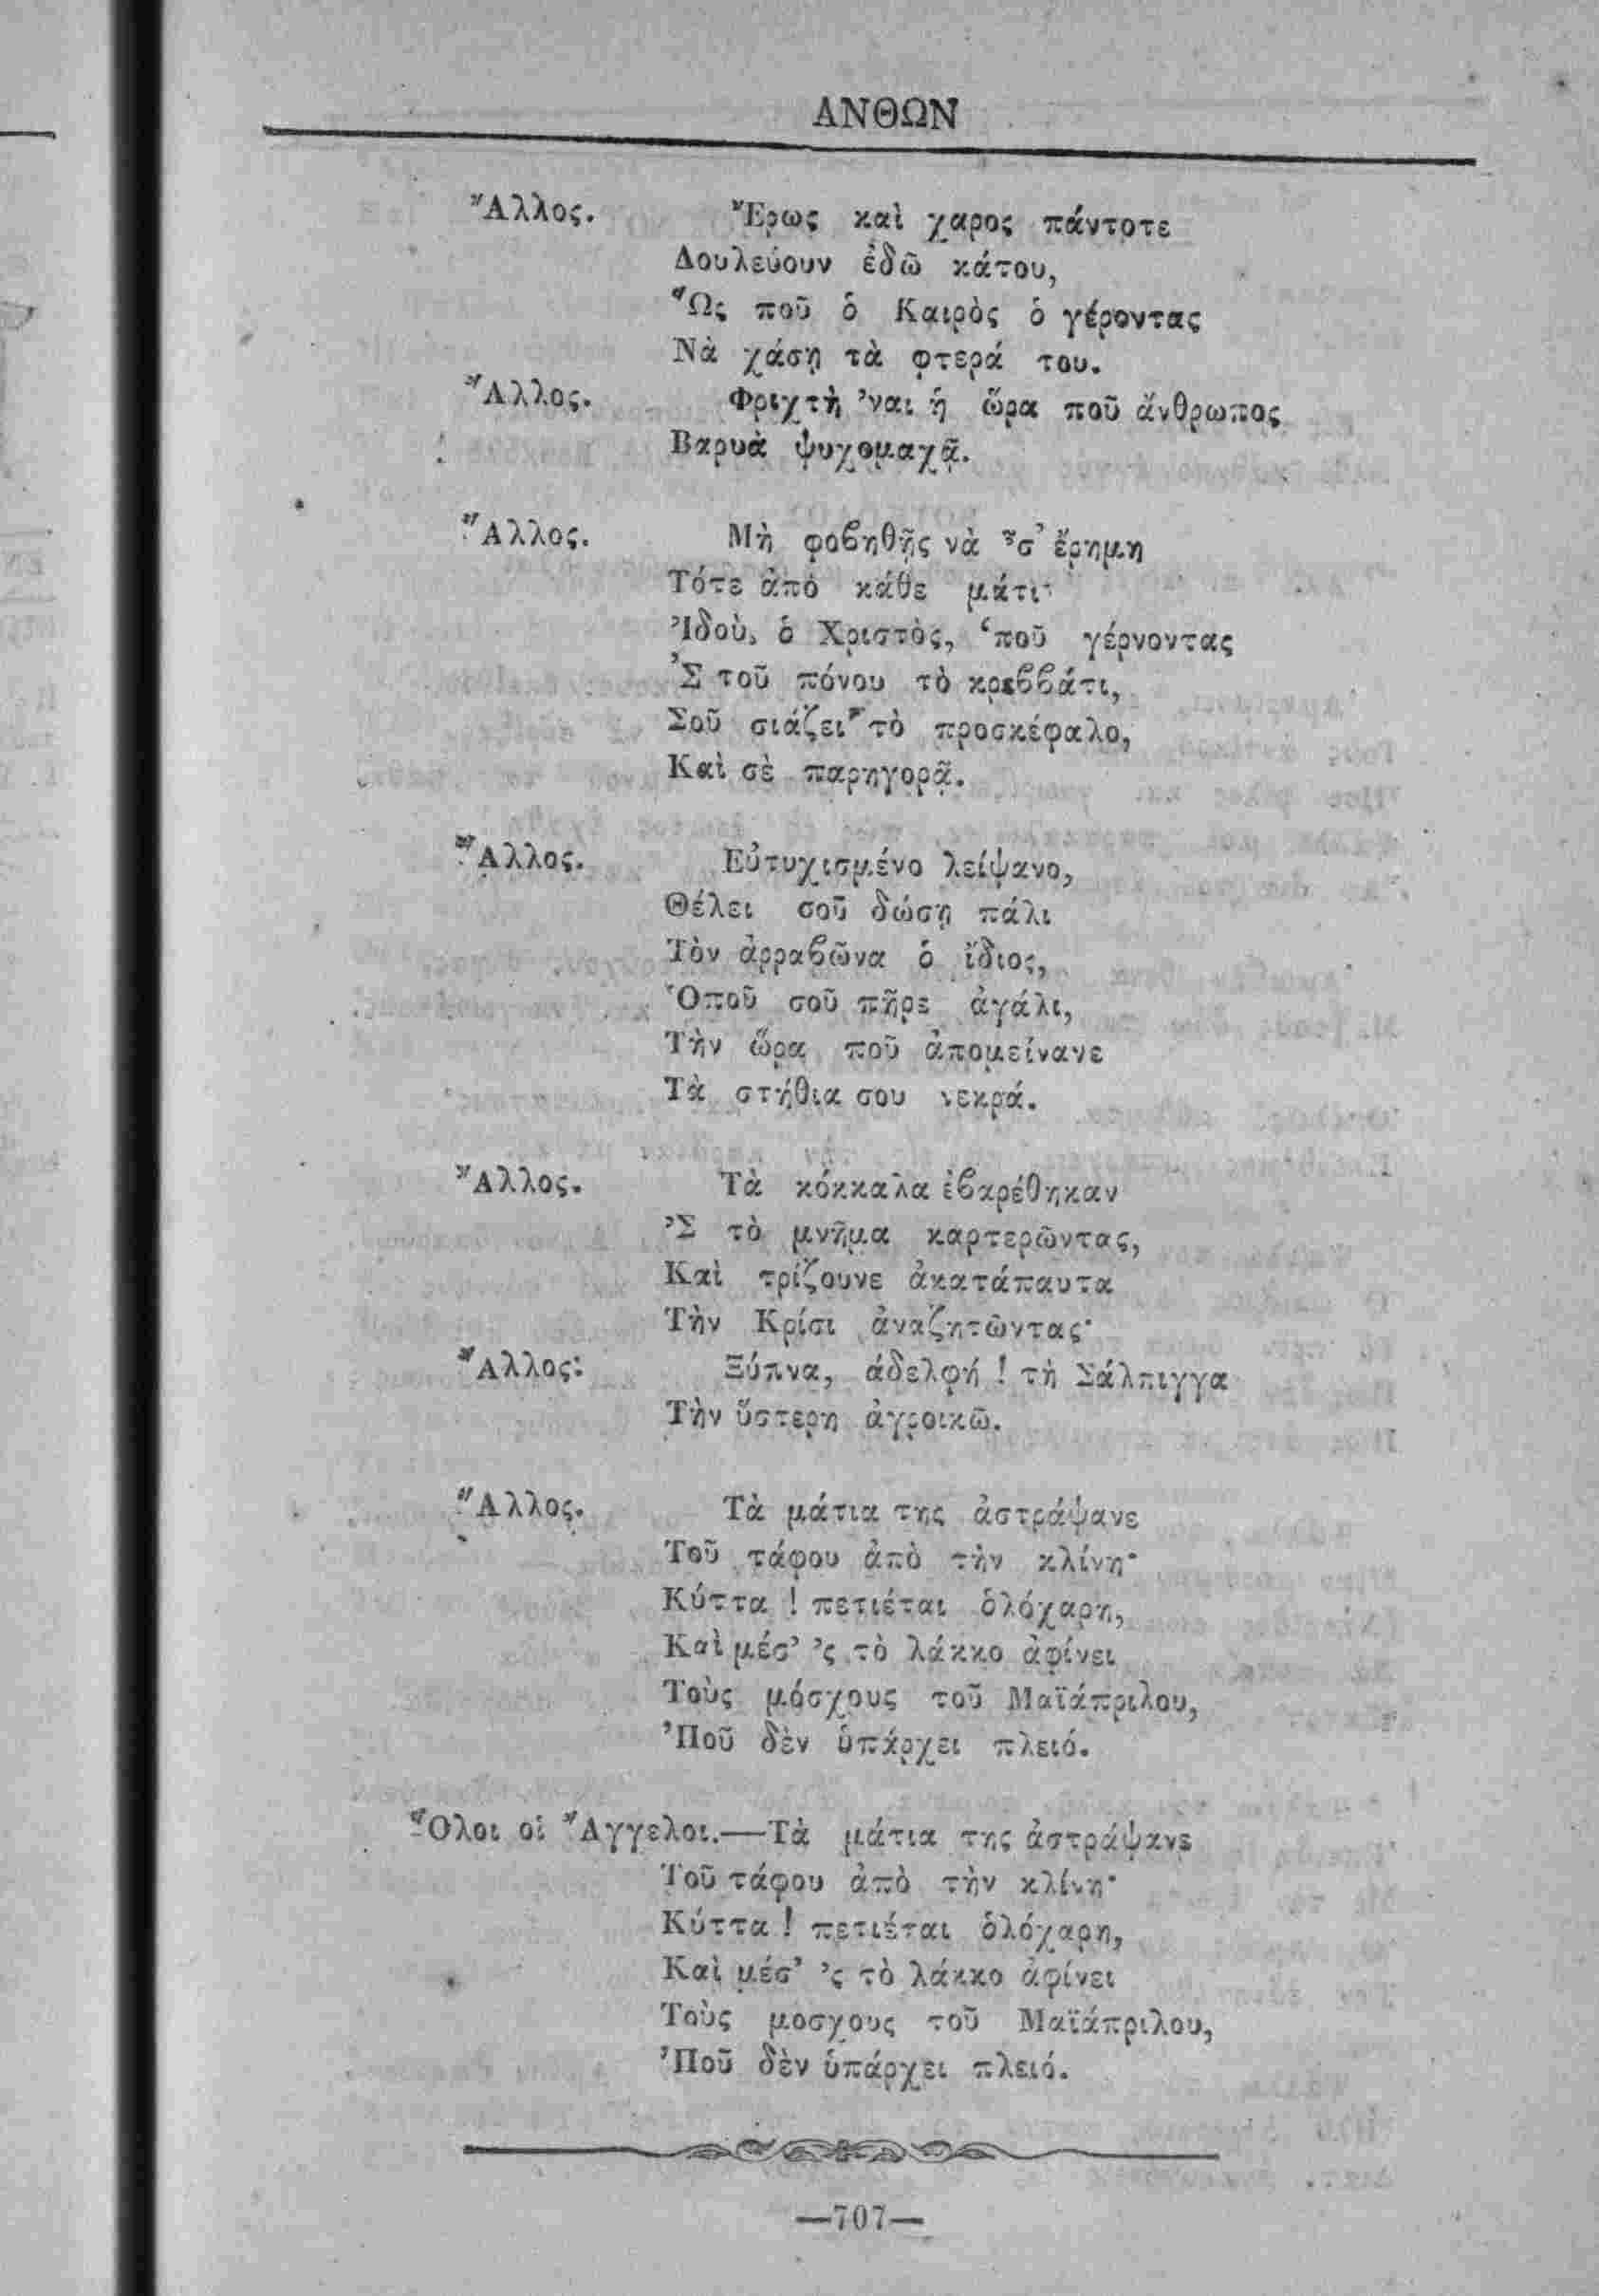 ΑΝΘΩΝ
Ἄλλος. Ἔρως καὶ χαρος πάντοτε
Δουλεύουν ἐδῶ κάτου,
Ὥς ποῦ ὁ Καιρὸς ὁ γέροντας
Νὰ χάσῃ τὰ φτερά του.
Ἄλλος. Φριχτὴ 'ναι ἡ ὥρα ποῦ ἄνθρωπος
Βαρυὰ ψυχομαχᾷ.
Ἄλλος. Μὴ φοβηθῇς νὰ ᾖσ' ἔρημη
Τότε ἀπὸ κάθε μάτι·
Ἰδοὺ, ὁ Χριστὸς, 'ποῦ γέρνοντας
Ἐ τοῦ πόνου τὸ κρεββάτι,
Σοῦ σιάζει τὸ προσκέφαλο,
Καὶ σὲ παρηγορᾷ.
Ἄλλος. Εὐτυχισμένο λείψανο,
Θέλει σοῦ δώσῃ πάλι
Τὸν ἀρραβῶνα ὁ ἴδιος,
Ὁποῦ σοῦ πῆρε ἀγάλι,
Τὴν ὥρα ποῦ ἀπομείνανε
Τὰ στήθια σου νεκρά.
Ἄλλος. Τὰ κόκκαλα ἐβαρέθηκαν
'Σ τὸ μνῆμα καρτερῶντας,
Καὶ τρίζουνε ἀκατάπαυτα
Τὴν Κρίσι ἀναζητῶντας·
Ἄλλος: Ξύπνα, ἀδελφή ! τὴ Σάλπιγγα
Τὴν ὕστερη ἀγροικῶ.
Ἄλλος. Τὰ μάτια της ἀστράψανε
Τοῦ τάφου ἀπὸ τὴν κλίνη·
Κύττα ! πετιέται ὁλόχαρη,
Καὶ μέσ' 'ς τὸ λάκκο ἀφίνει
Τοὺς μόσχους τοῦ Μαϊάπριλου,
'Ποῦ δὲν ὑπάρχει πλειό.
Ὅλοι οἱ Ἄγγελοι.—Τὰ μάτια της ἀστράψανε
Τοῦ τάφου ἀπὸ τὴν κλίνη·
Κύττα ! πετιέται ὁλόχαρη,
Καὶ μέσ' 'ς τὸ λάκκο ἀφίνει
Τοὺς μοσχους τοῦ Μαϊάπριλου,
'Ποῦ δὲν ὑπάρχει πλειό.
—707—